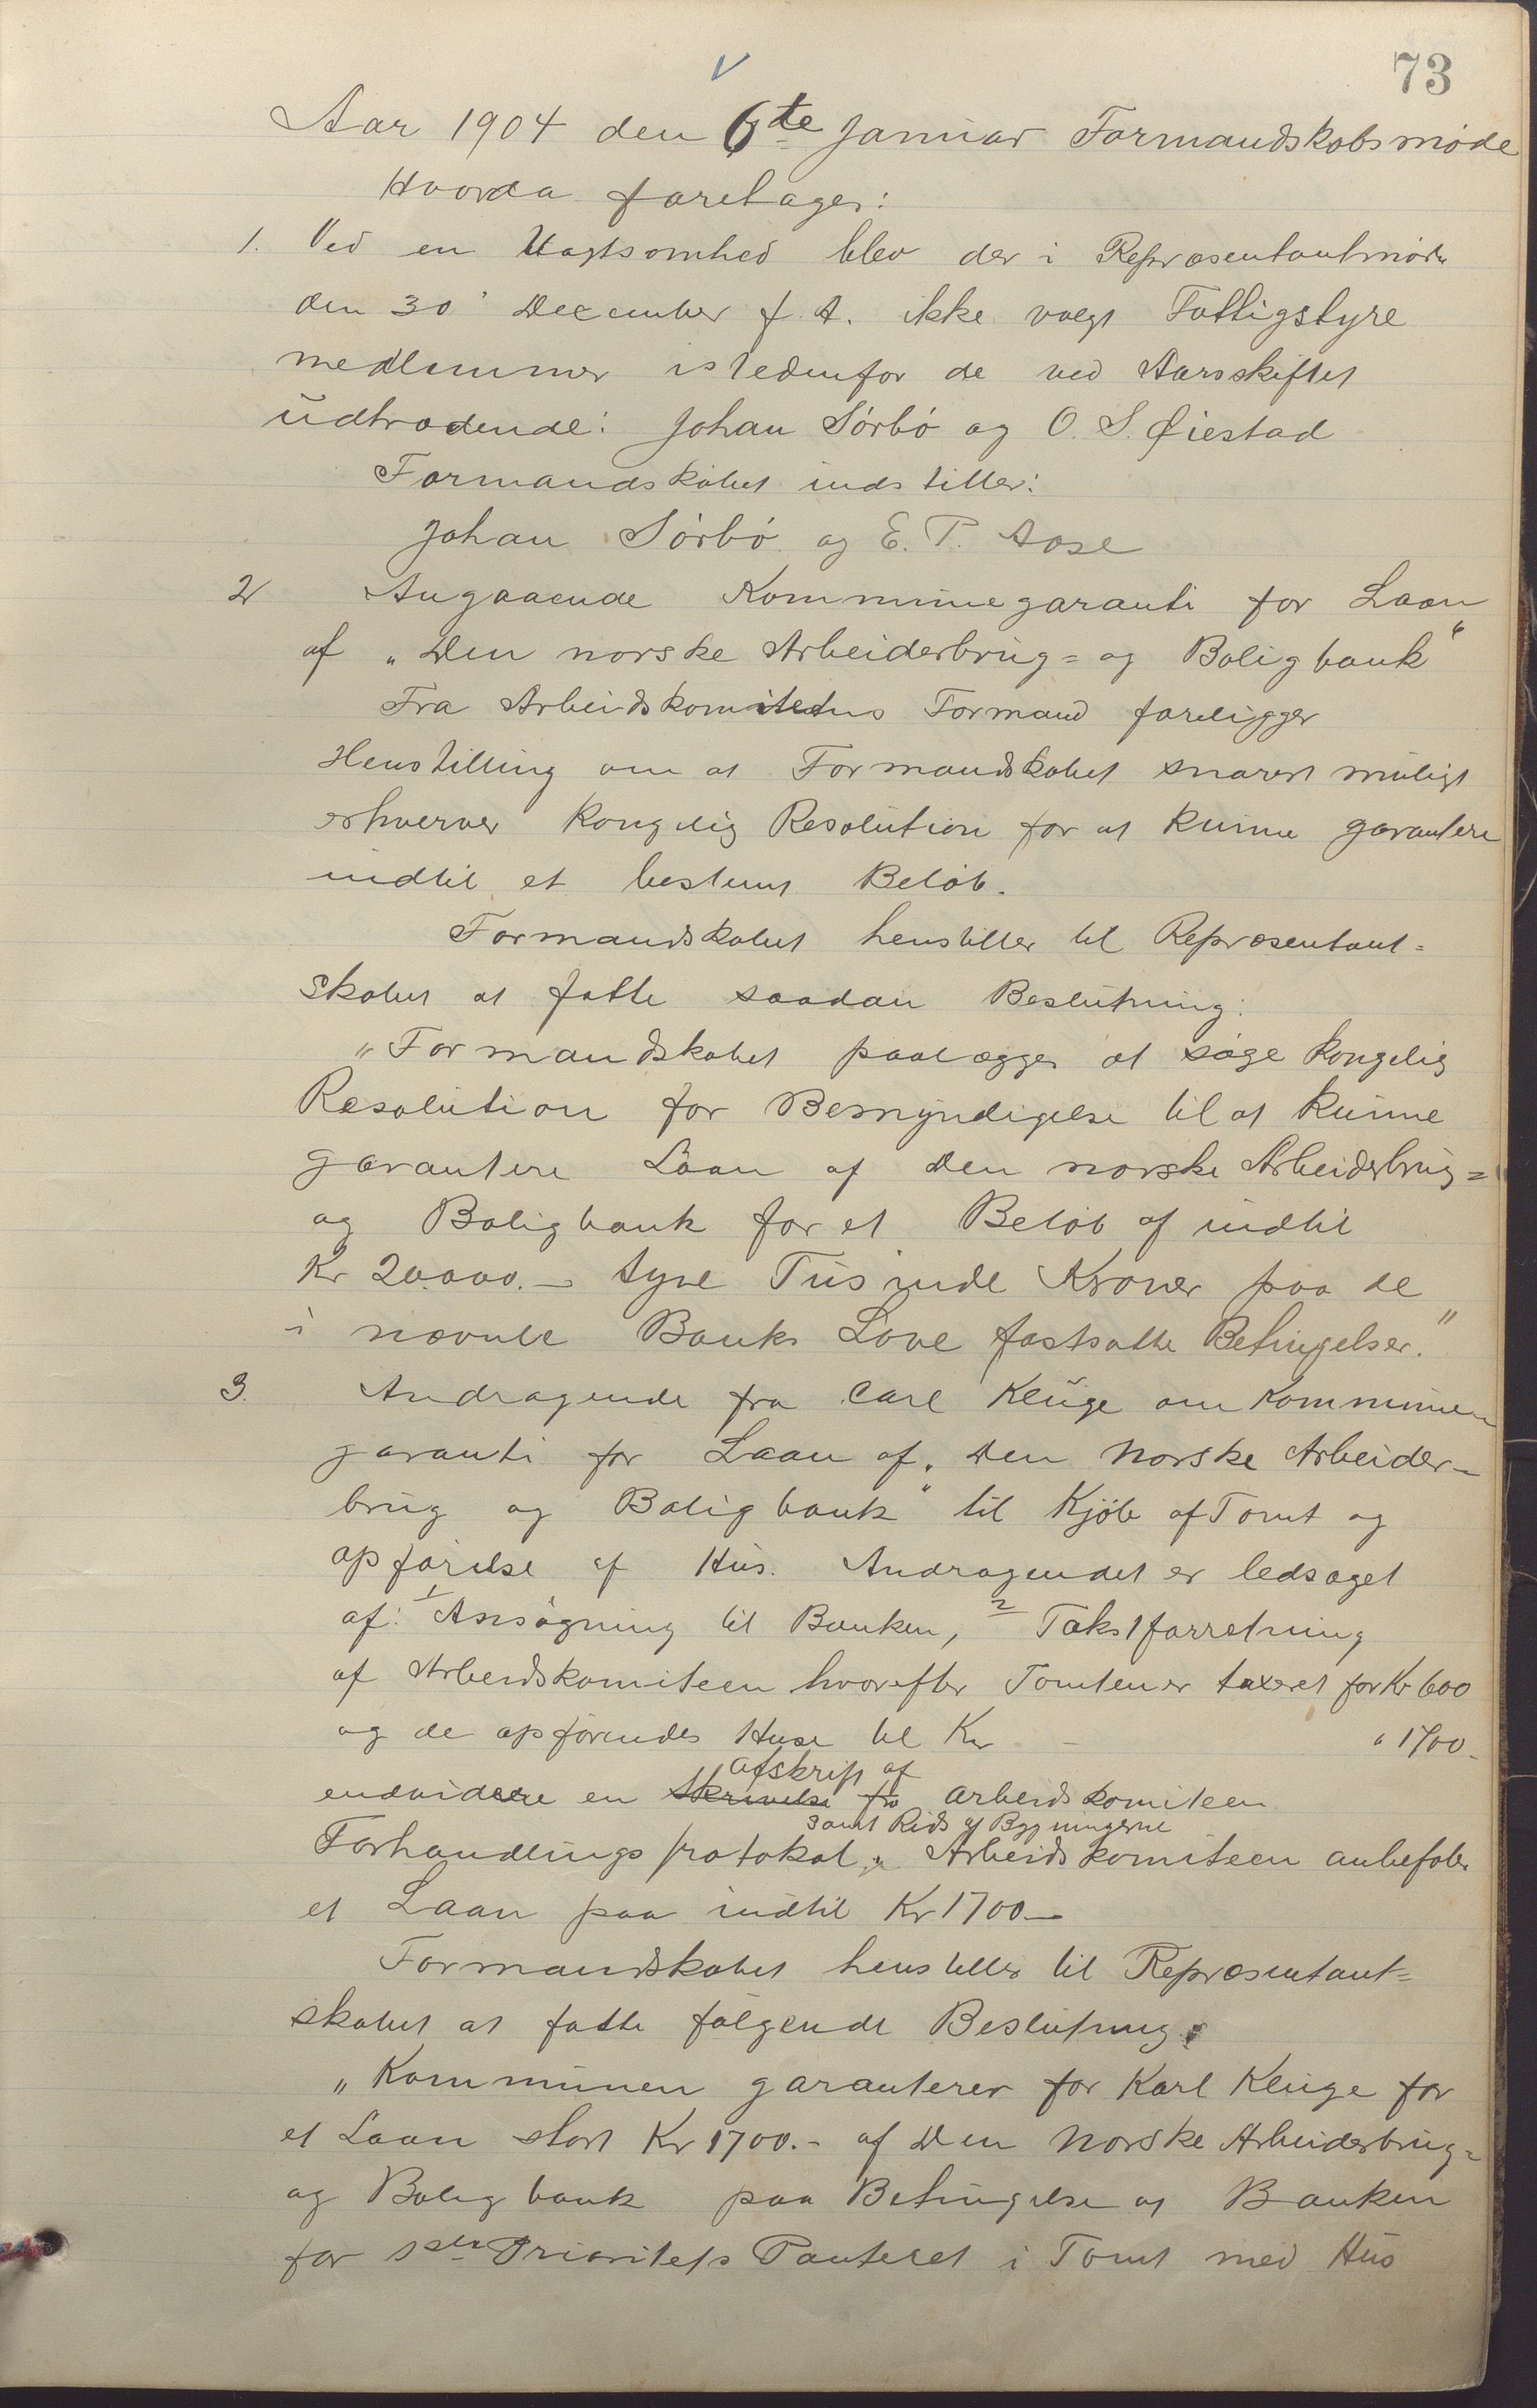 73
Aar 1904 den 6te Januar Formandskabsmøde
Hvorda foretages:
1. Ved en Uagtsomhed blev der i Repræsentantmøde
den 30' December f. A. ikke valgt Fattigstyre
medlemmer istedenfor de ved Aarsskiftet
udtrædende: Johan Sörbö og O. S. Øiestad
Formandskabet indstiller:
Johan Sörbö og E. T. Aase
2 Angaaende Kommunegaranti for Laan
af „Den norske Arbeiderbrug= og Boligbank“
Fra Arbeidskomiteens Formand foreligger
Henstilling om at Formandskabet snarest muligt
erhverver kongelig Resolution for at kunne garantere
indtil et bestemt Beløb.
Formandskabet henstiller til Repræsentant=
skabet at fatte saadan Beslutning:
„Formandskabet paalægges at søge kongelig
Resolution for Bemyndigelse til at kunne
garantere Laan af Den norske Arbeiderbrug=
og Boligbank for et Beløb af indtil
Kr 20.000.— tyve Tusinde Kroner paa de
i nævnte Banks Love fastsatte Betingelser.“
3. Andragende fra Carl Kluge om Kommunen
garanti for Laan af „Den Norske Arbeider-
brug og Boligbank“ til Kjøb af Tomt og
opførelse af Hus. Andragendet er ledsaget
af: 1 Ansøgning til Banken, 2 Takstforretning
af Arbeidskomiteen hvorefter Tomten er taxeret for Kr 600
og de opførendes Huse til Kr - " 1700-
afskrift af
endvidere en Skrivelse fra arbeidskomiteen
samt Rids af Bygningerne
Forhandlings protokol. Arbeidskomiteen anbefaler
et Laan paa indtil Kr 1700—
Formandskabet henstiller til Repræsentant=
skabet at fatte følgende Beslutning:
„Kommunen garanterer for Karl Kluge for
et Laan stort Kr 1700.- af Den Norske Arbeiderbrug=
og Boligbank paa Betingelse at Banken
for 1ste Prioritets Panteret i Tomt med Hus